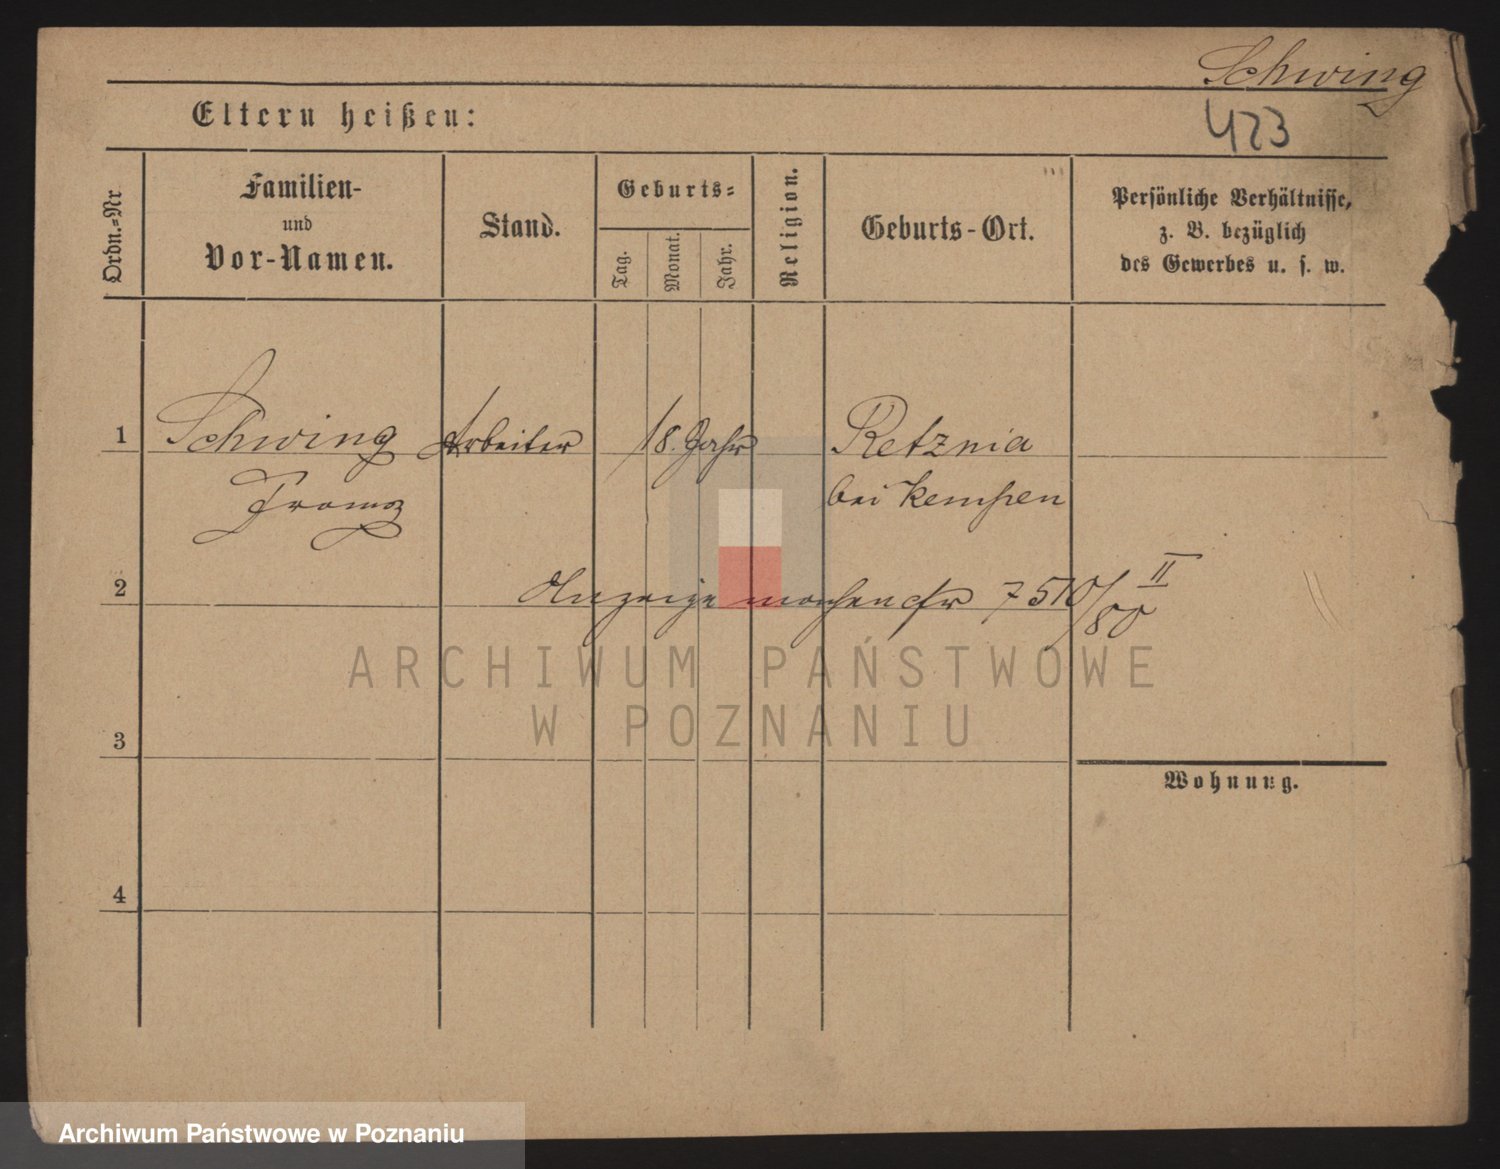 Schwing
423
Eltern heißen:
Ordn.-Nr
Familien-
und
Vor-Namen.
Stand.
Geburts=
Tag.
Monat.
Jahr.
Religion.
Geburts-Ort.
Persönliche Verhältnisse,
z. B. bezüglich
des Gewerbes u. s. w.
1 Schwing Arbeiter 18. Jahr Retznia
Franz bei Kempen
2 Anzeige machen 7510/80 II
ARCHIWUM PAŃSTWOWE
W POZNANIU
3
Wohnung.
4
Archiwum Państwowe w Poznaniu